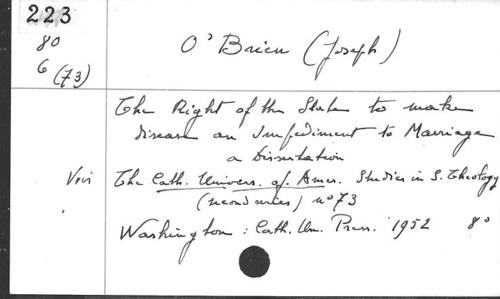 223
80
6 (73)
O'Brien (Joseph)
The Right of the State to make
disease an Impediment to Marriage
a Dissertation
Voir The Cath. Univers. of Amer. Studies in S. Theology
(second series) nº 73
Washington : Cath. Un. Press. 1952 80